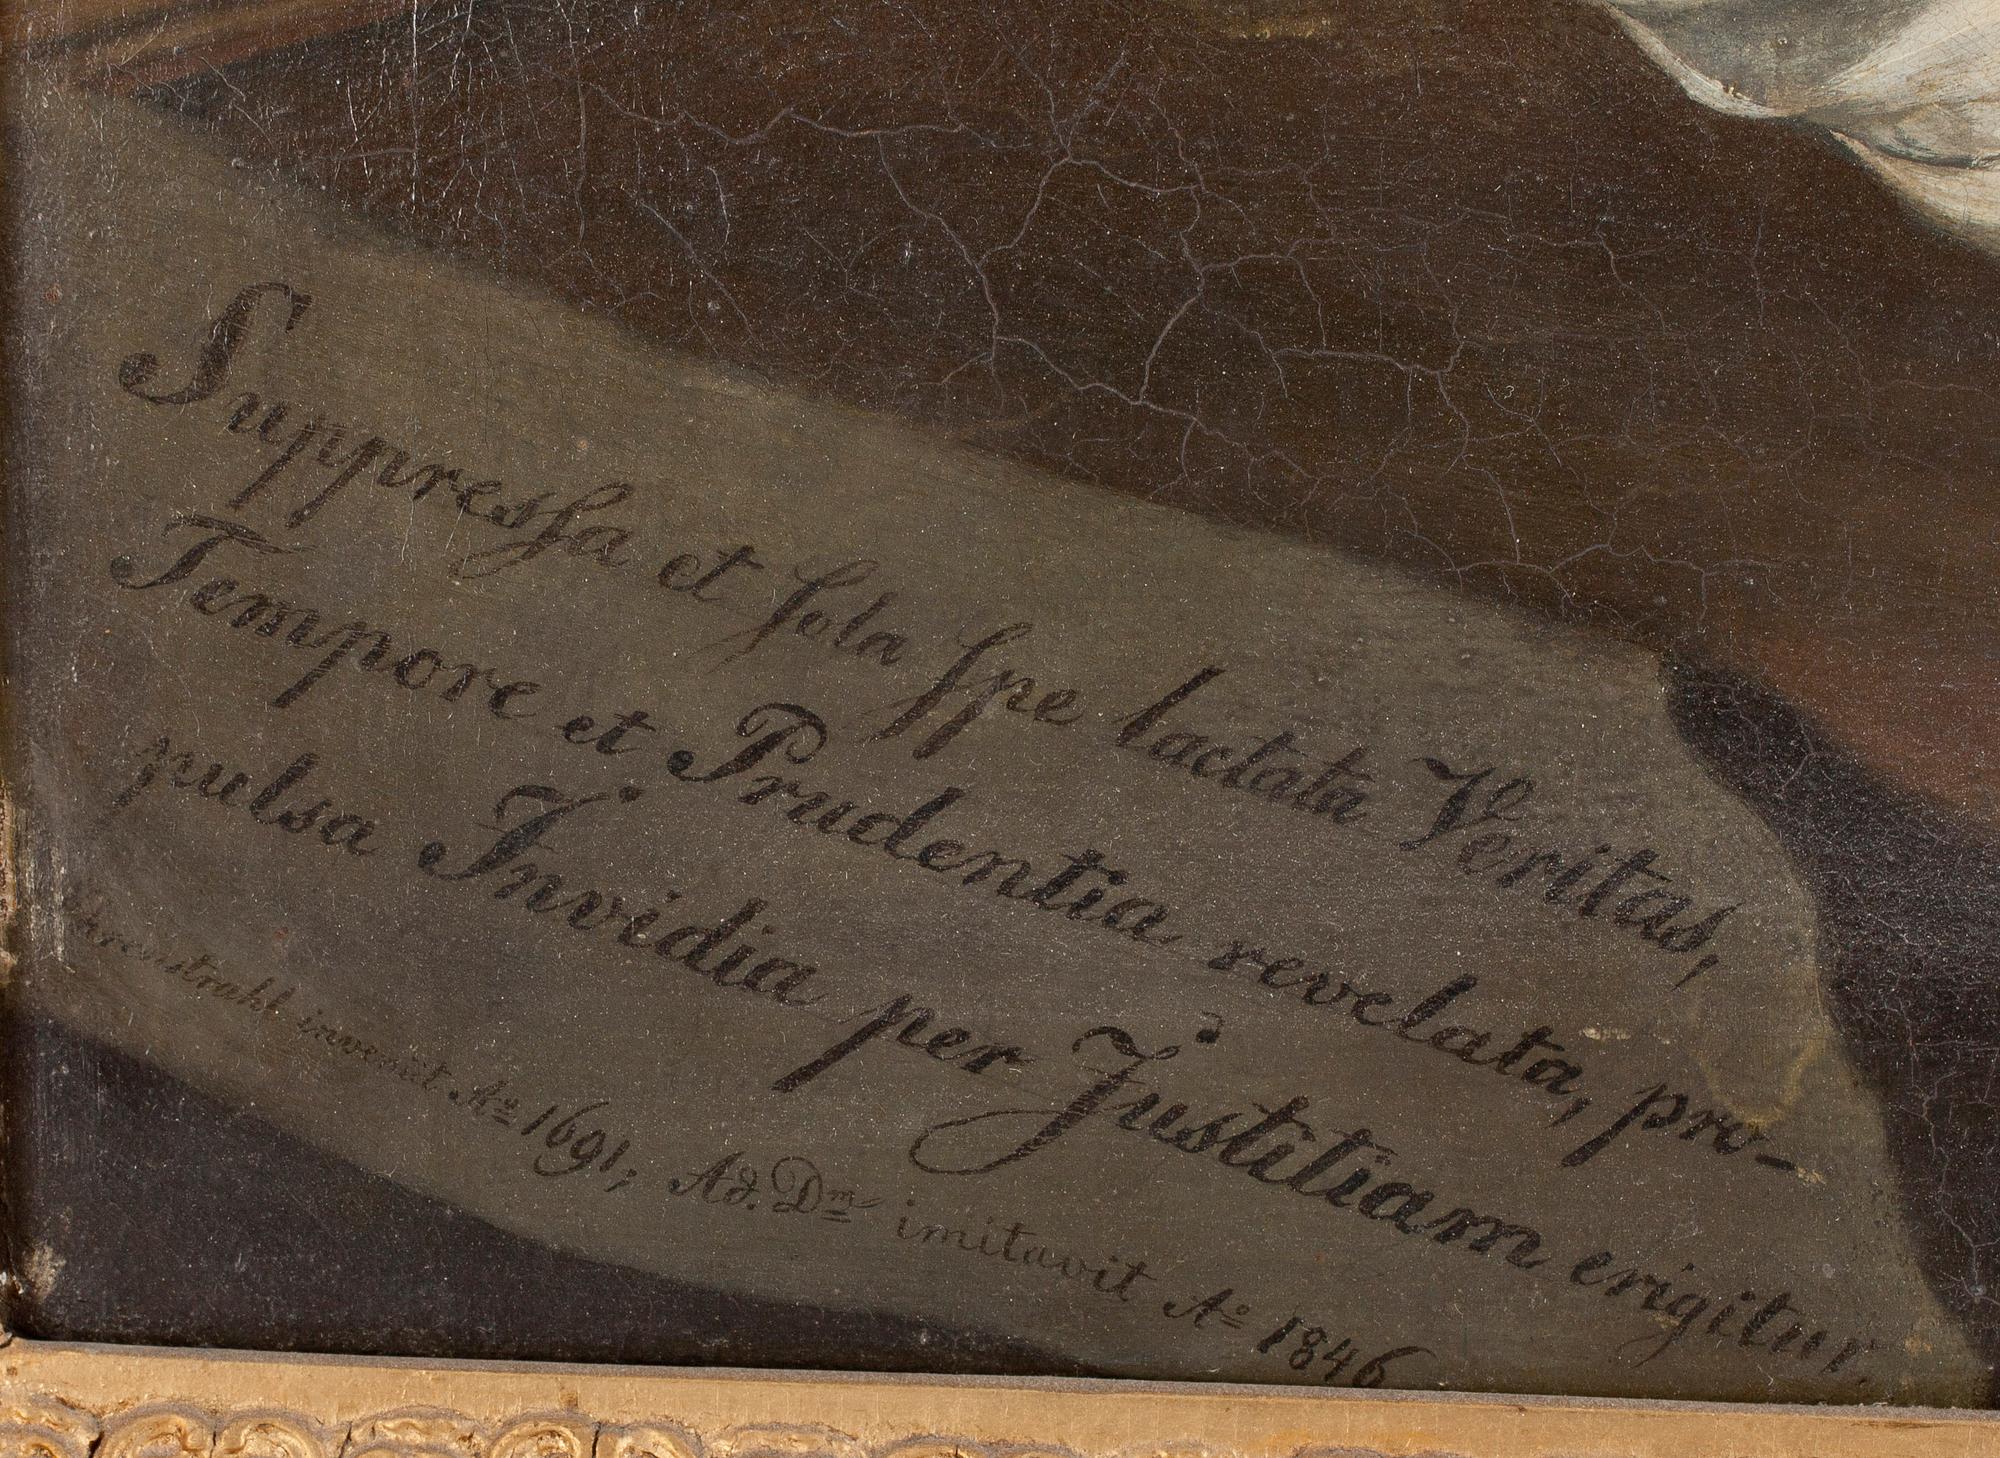 Suppressa et sola spe lactata Veritas,
Tempore et Prudentia revelata, pro-
pulsa Invidia per Justitiam erigitur.
Ehrenstrahl invenit Aº 1691; Ad. Dm imitavit Aº 1846